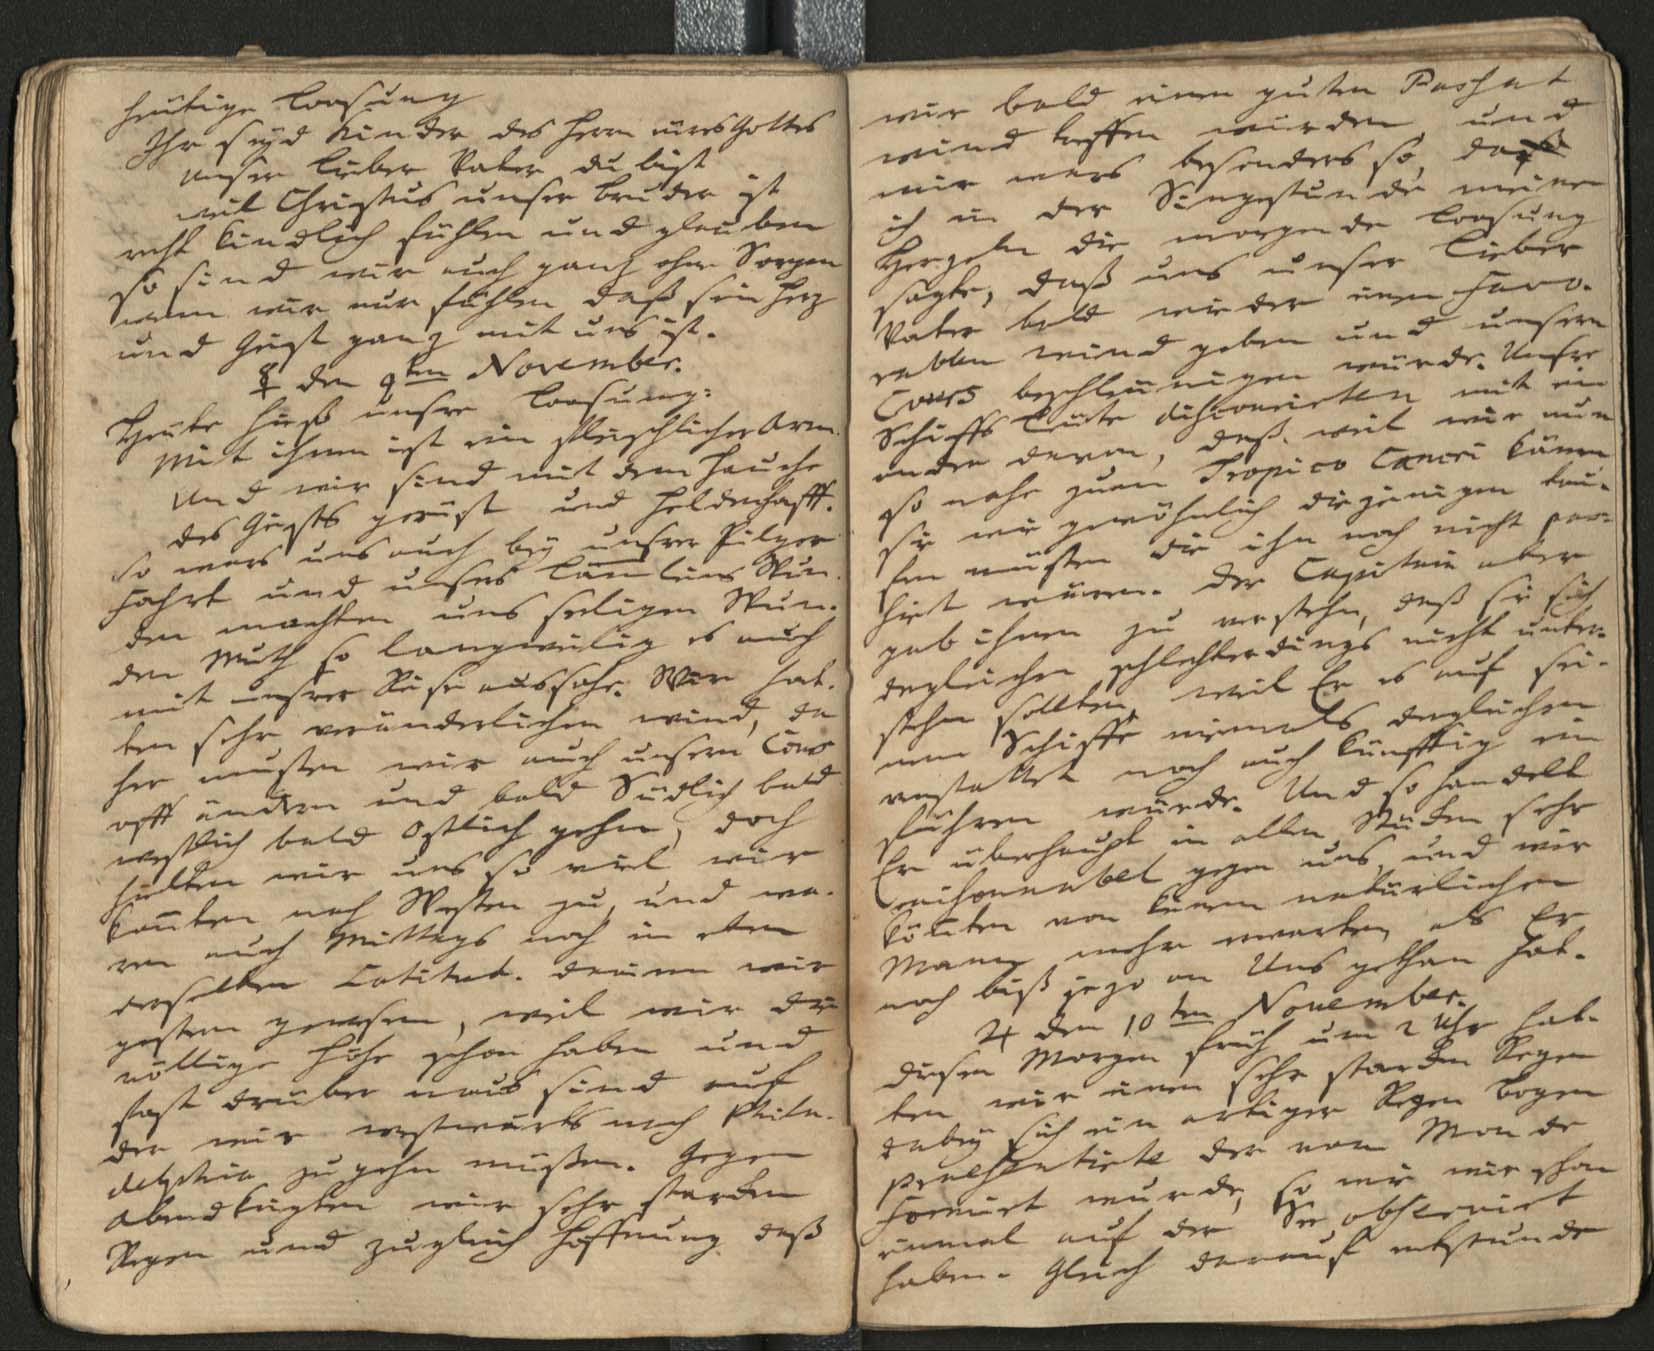 heütige Loosung
Ihr seyd Kinder des Herrn eüres Gottes
Unser lieber Vater du bist
weil Christus unser Bruder ist
recht kindlich fühlen und glauben
so sind wir auch gantz ohne Sorgen
wenn wir nur fühlen daß sein Herz
und Geist ganz mit uns ist.
☿ den 9ten November.
Heüte hieß unsre Loosung:
Mit ihnen ist ein fleischlicher Arm.
Und wir sind mit dem Hauche
des Geists gerüst und heldenhafft.
so wars uns auch bey unsrer Pilger
Fahrt und unsers Lämleins Wun-
den machten uns seeligen Wun-
den Muth so langweilig es auch
mit unsrer Reise aussahe. Wir hat-
ten sehr veränderlichen wind, da
her musten wir auch unsern Cours
offt ändern und bald Südlich bald
westlich bald Ostlich gehn, doch
hielten wir uns so viel wir
konten nach Westen zu, und wa-
ren auch Mittags noch in eben
derselben Latitut. darinn wir
gestern gewesen, weil wir die
völlige Höhe schon haben und
fast drüber naus sind auf
der wir westwärts nach Phila-
delphia zu gehn müßen. Gegen
Abend kriegten wir sehr starcken
Regen und zugleich Hoffnung daß
wir bald einen guten Pashat
wind treffen würden, und
mir wars besonders so, daß
ich in der Singstunde meinen
Herzeln die morgende Loosung
sagte, daß uns unser lieber
Vater bald wieder einen favo-
rablen wind geben und unsern
Cours beschleünigen würde. Unsre
Schiffs Leüte discourirten mit ein
ander davon, daß weil wir nun
so nahe zum Tropico Cancri kämen
sie wie gewöhnlich diejenigen tau-
fen müsten die ihn noch nicht pas-
hirt wären. Der Capitain aber
gab ihnen zu verstehn, daß sie sich
dergleichen schlechterdings nicht unter-
stehn sollten, weil Er es auf sei-
nem Schiffe niemals dergleichen
verstattet noch auch künfftig ein
führen würde. Und so handelt
Er überhaupt in allen Stücken sehr
raisonnabel gegen uns, und wir
könten von keinem natürlichen
Mann mehr erwarten, als Er
noch biß jezo an Uns gethan hat.
♃ den 10ten November.
diesen Morgen früh um 2 Uhr hat-
ten wir einen sehr starcken Regen
dabey sich ein artiger Regen Bogen
praesentirte der vom Monde
formirt wurde, so wie wir schon
einmal auf der See observirt
haben. Gleich darauf entstunde